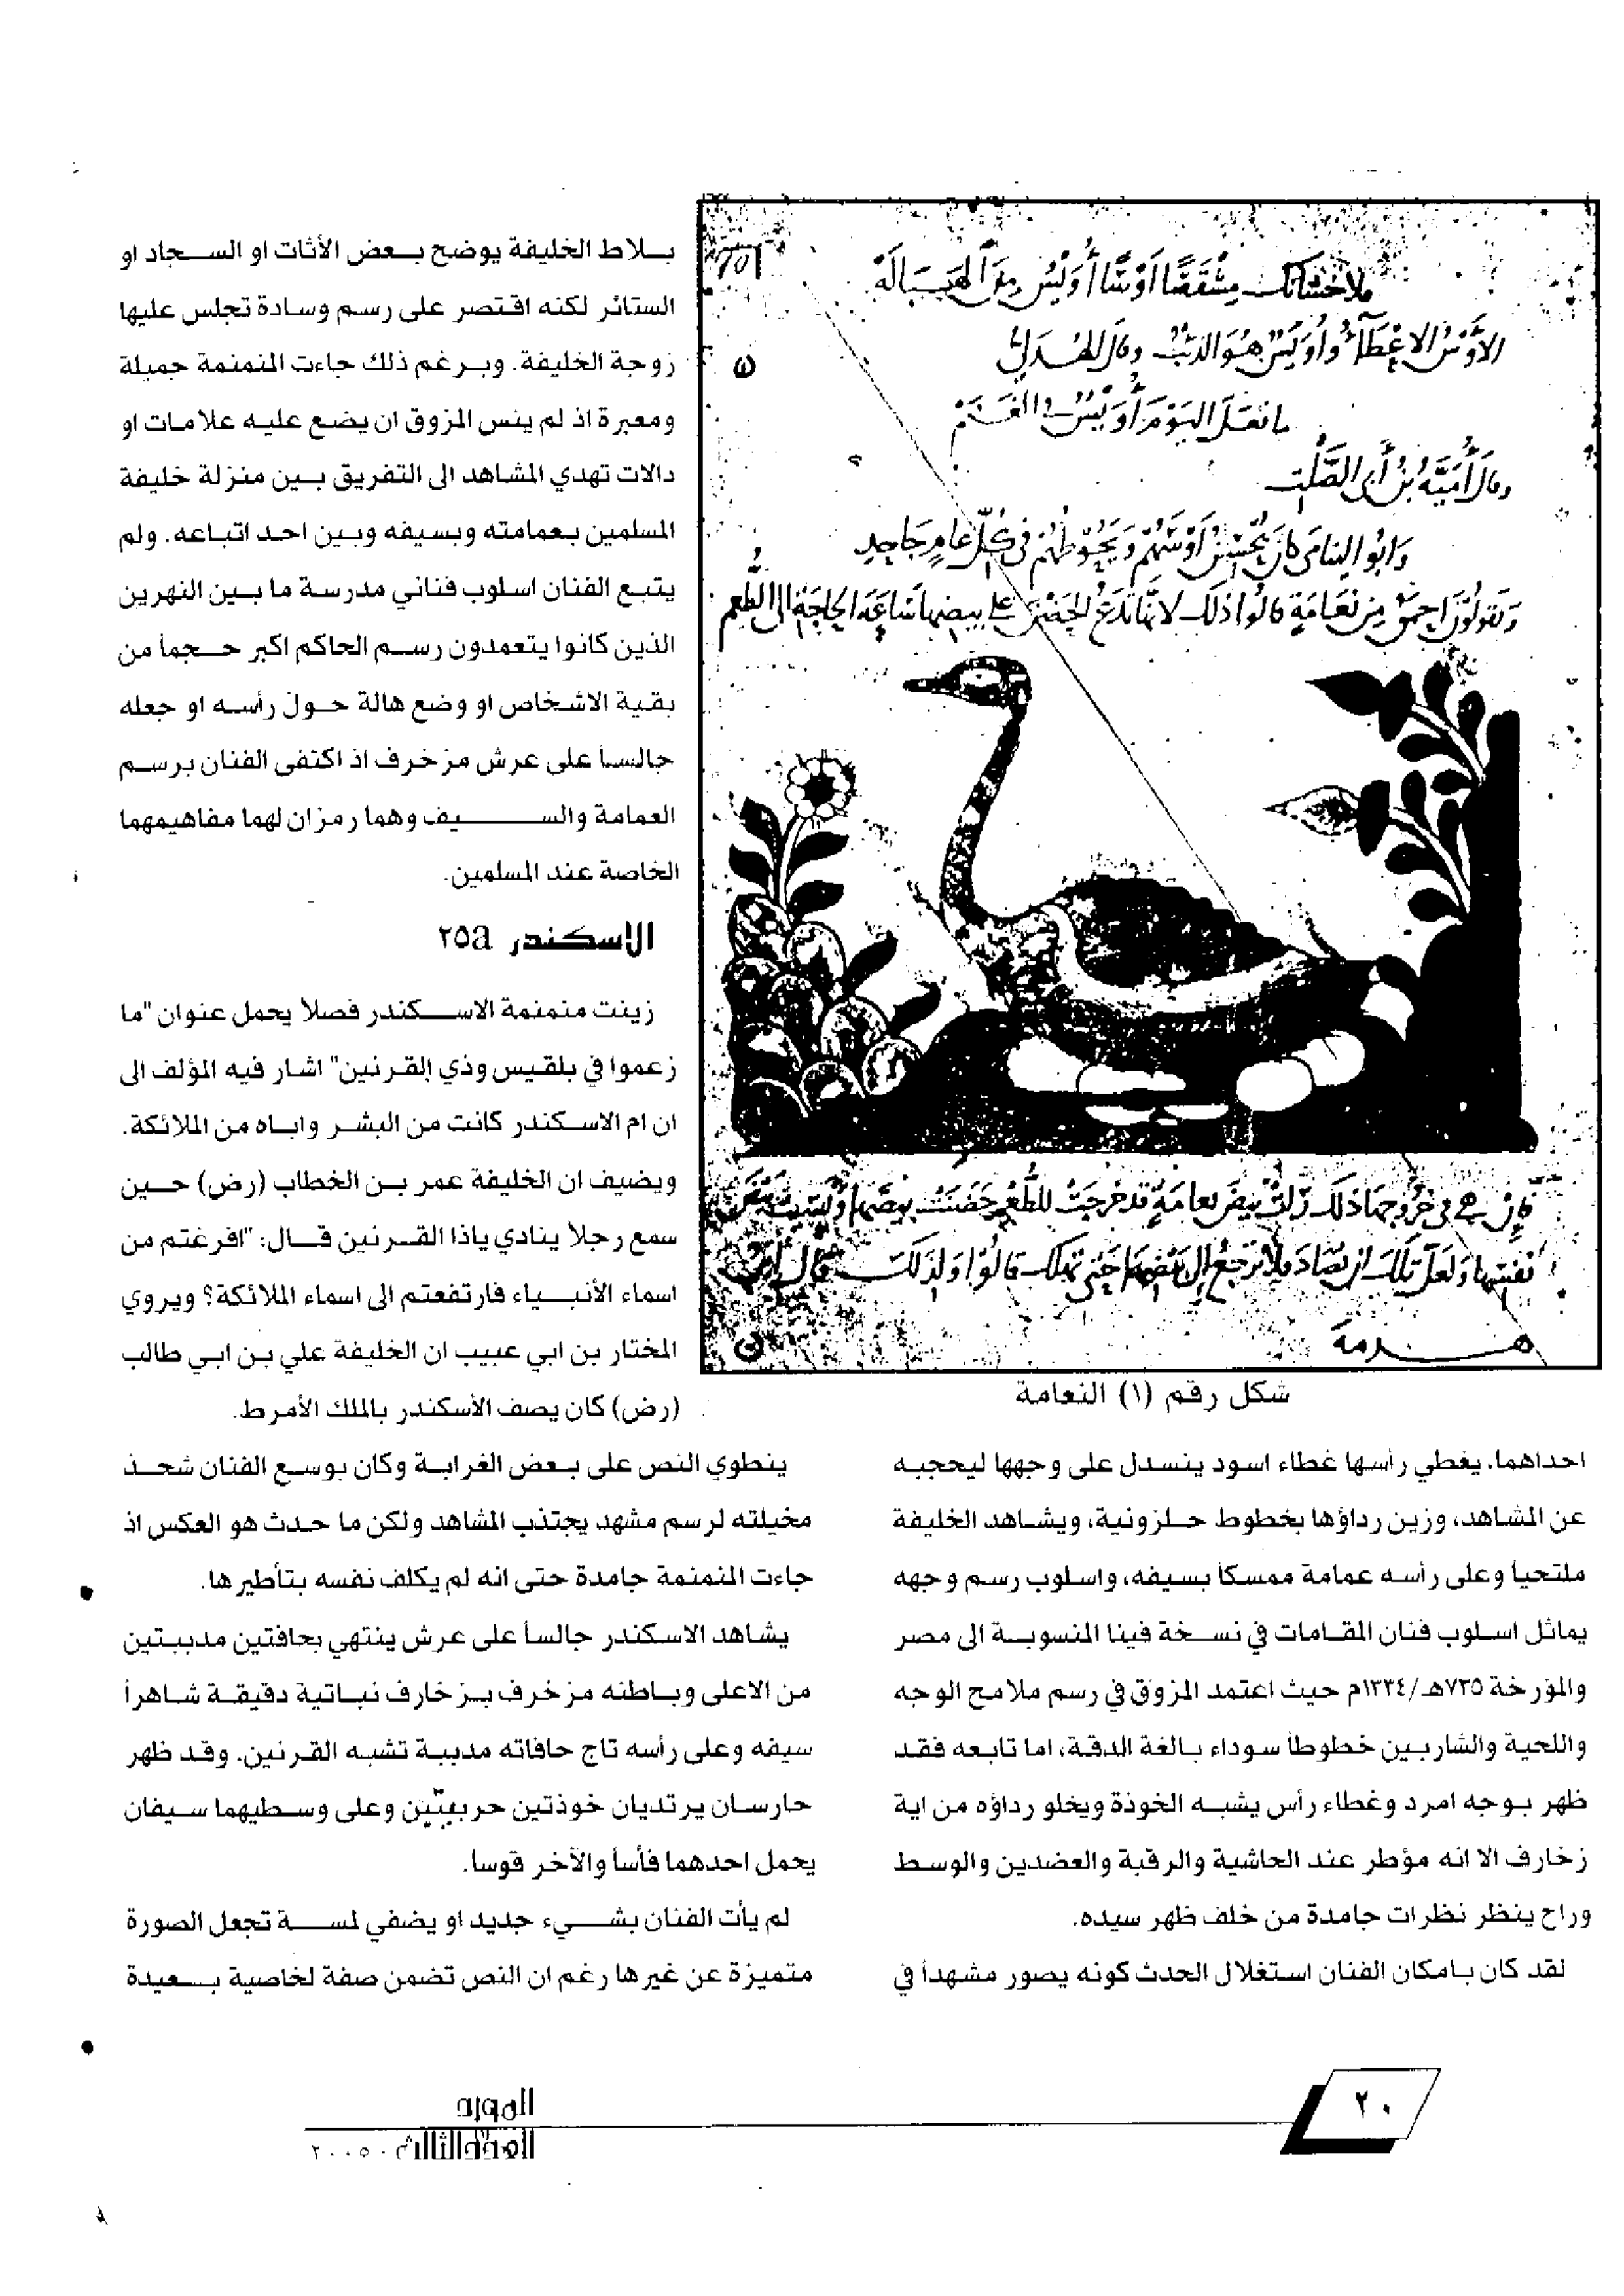 ملاحشانك مشقصا أوسا أويس من الهبالة
الأوس الإعطاء وأويس هو الذئب وقال الهذلي
ما فعل اليوم أويس في الغنم
وقال أمية بن أبي الصلت
وابو اليتامى كان يحسن أوسهم ويحوطهم في كل عام جاحد
وتقولون احمق من نعامة قالوا ذلك لانها تدع الحضن على بيضها ساعة الحاجة الى الطعم
فإن هي في خروجها ذلك رأت بيض نعامة قد خرجت للطعم حضنت بيضها ونسيت بيض
نفسها ولعل تلك ان تصاد فلا ترجع الى بيضها حتى تهلك قالوا ولذلك قال ابن
هرمة
شكل رقم (١) النعامة
احداهما. يغطي رأسها غطاء اسود ينسدل على وجهها ليحجبه
عن المشاهد، وزين رداؤها بخطوط حلزونية، ويشاهد الخليفة
ملتحياً وعلى رأسه عمامة ممسكاً بسيفه، واسلوب رسم وجهه
يماثل اسلوب فنان المقامات في نسخة فينا المنسوبة الى مصر
والمؤرخة ٧٣٥هـ/١٣٣٤م حيث اعتمد المزوق في رسم ملامح الوجه
واللحية والشاربين خطوطاً سوداء بالغة الدقة، اما تابعه فقد
ظهر بوجه امرد وغطاء رأس يشبه الخوذة ويخلو رداؤه من اية
زخارف الا انه مؤطر عند الحاشية والرقبة والعضدين والوسط
وراح ينظر نظرات جامدة من خلف ظهر سيده.
لقد كان بامكان الفنان استغلال الحدث كونه يصور مشهداً في
بلاط الخليفة يوضح بعض الأثاث او السجاد او
الستائر لكنه اقتصر على رسم وسادة تجلس عليها
زوجة الخليفة. وبرغم ذلك جاءت المنمنمة جميلة
ومعبرة اذ لم ينس المزوق ان يضع عليه علامات او
دالات تهدي المشاهد الى التفريق بين منزلة خليفة
المسلمين بعمامته وبسيفه وبين احد اتباعه. ولم
يتبع الفنان اسلوب فناني مدرسة ما بين النهرين
الذين كانوا يتعمدون رسم الحاكم اكبر حجماً من
بقية الاشخاص او وضع هالة حول رأسه او جعله
جالساً على عرش مزخرف اذ اكتفى الفنان برسم
العمامة والسيف وهما رمزان لهما مفاهيمهما
الخاصة عند المسلمين.
الاسكندر ٢٥a
زينت منمنمة الاسكندر فصلا يحمل عنوان "ما
زعموا في بلقيس وذي القرنين" اشار فيه المؤلف الى
ان ام الاسكندر كانت من البشر واباه من الملائكة.
ويضيف ان الخليفة عمر بن الخطاب (رض) حين
سمع رجلا ينادي ياذا القرنين قال: "افرغتم من
اسماء الأنبياء فارتفعتم الى اسماء الملائكة؟ ويروي
المختار بن ابي عبيب ان الخليفة علي بن ابي طالب
(رض) كان يصف الأسكندر بالملك الأمرط.
ينطوي النص على بعض الغرابة وكان بوسع الفنان شحذ
مخيلته لرسم مشهد يجتذب المشاهد ولكن ما حدث هو العكس اذ
جاءت المنمنمة جامدة حتى انه لم يكلف نفسه بتأطيرها.
يشاهد الاسكندر جالساً على عرش ينتهي بحافتين مدببتين
من الاعلى وباطنه مزخرف بزخارف نباتية دقيقة شاهراً
سيفه وعلى رأسه تاج حافاته مدببة تشبه القرنين. وقد ظهر
حارسان يرتديان خوذتين حربيتين وعلى وسطيهما سيفان
يحمل احدهما فأساً والآخر قوسا.
لم يأت الفنان بشيء جديد او يضفي لمسة تجعل الصورة
متميزة عن غيرها رغم ان النص تضمن صفة لخاصية بعيدة
٢٠
المورد
العدد الثالث ٢٠٠٥